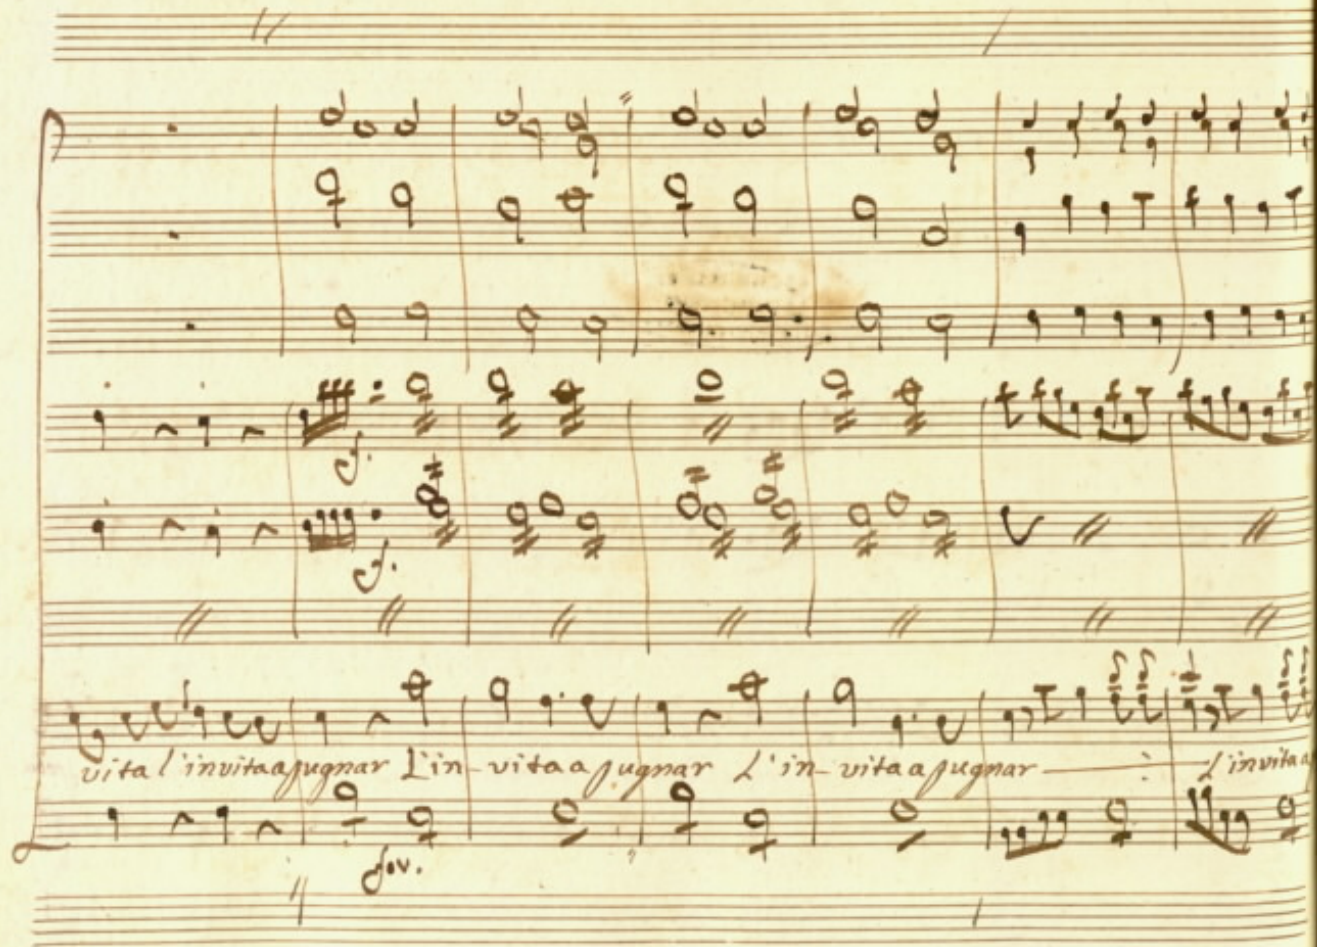 f.
f.
vita l'invita a pugnar L'in-vita a pugnar L'in-vita a pugnar L'invita a